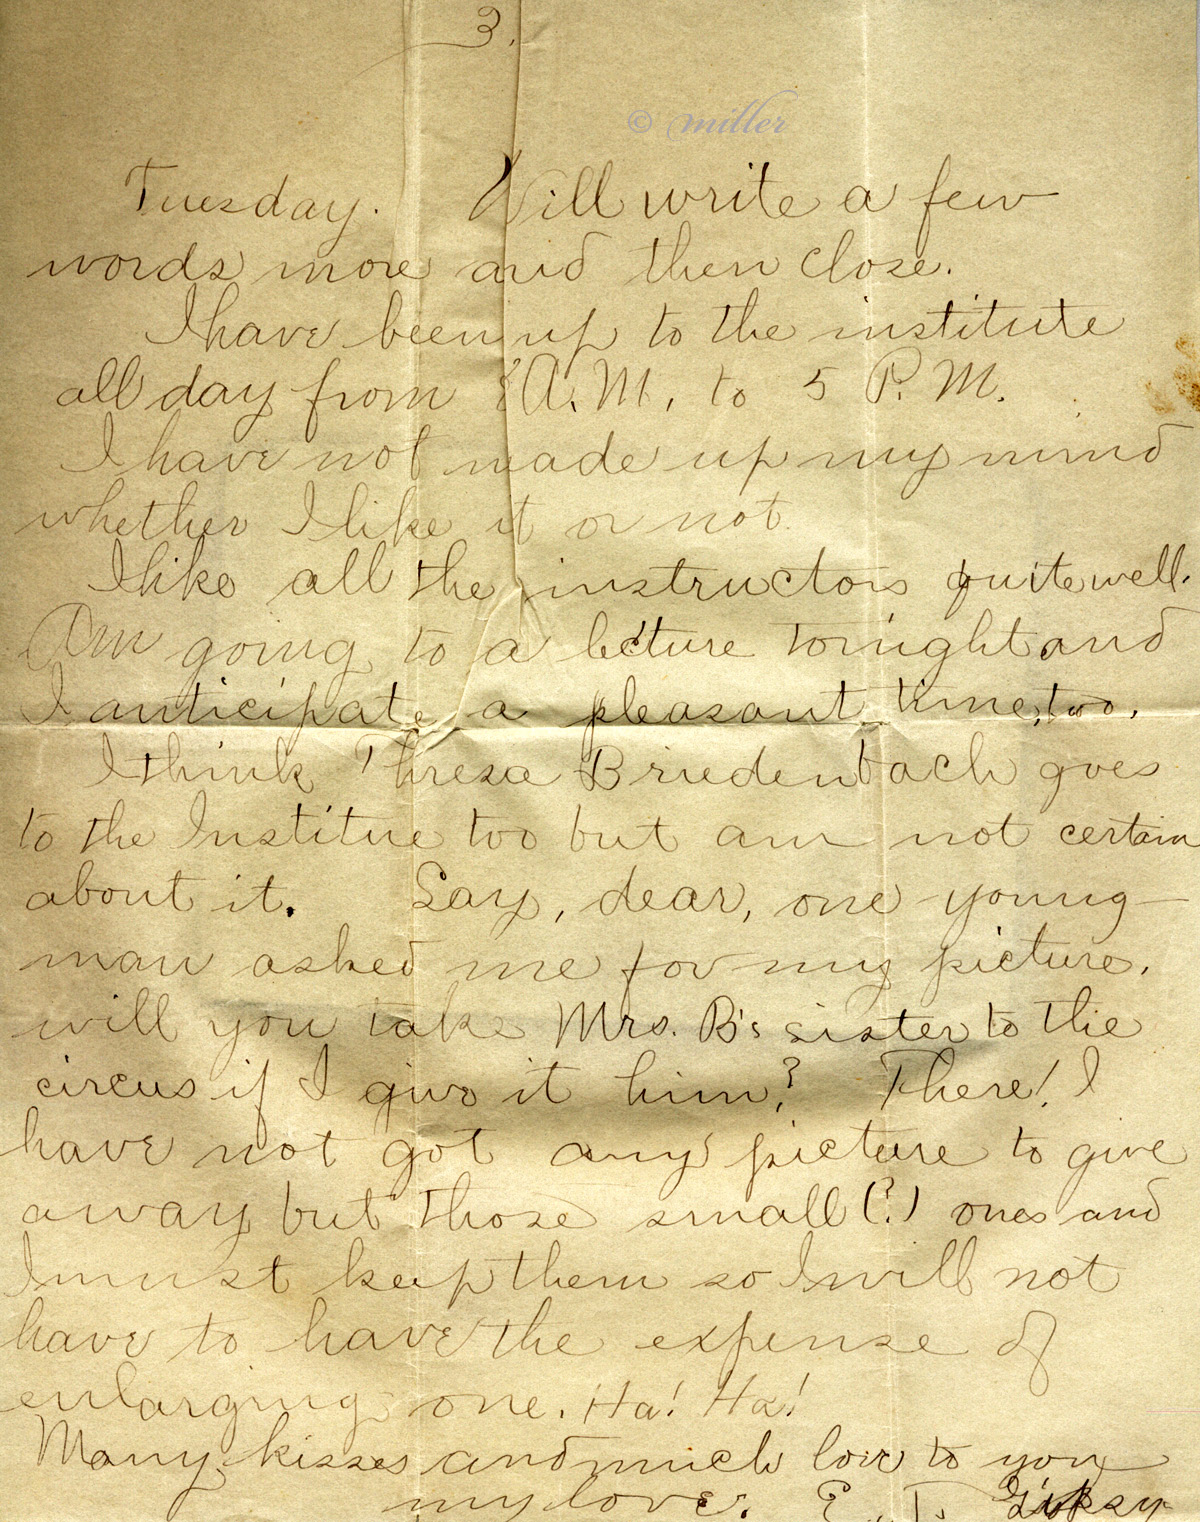 3.
© miller
Tuesday. Will write a few
words more and then close.
I have been up to the institute
all day from 8 A.M. to 5 P.M.
I have not made up my mind
whether I like it or not.
I like all the instructors quite well.
Am going to a lecture tonight and
I anticipate a pleasant time, too.
I think Thresa Briedenbach goes
to the Institue too but am not certain
about it. Say, dear, one young
man asked me for my picture,
will you take Mrs. B's sister to the
circus if I give it him? There! I
have not got any picture to give
away but those small (?) ones and
I must keep them so I will not
have to have the expense of
enlarging one. Ha! Ha!
Many kisses and much love to you
my love. E. T.